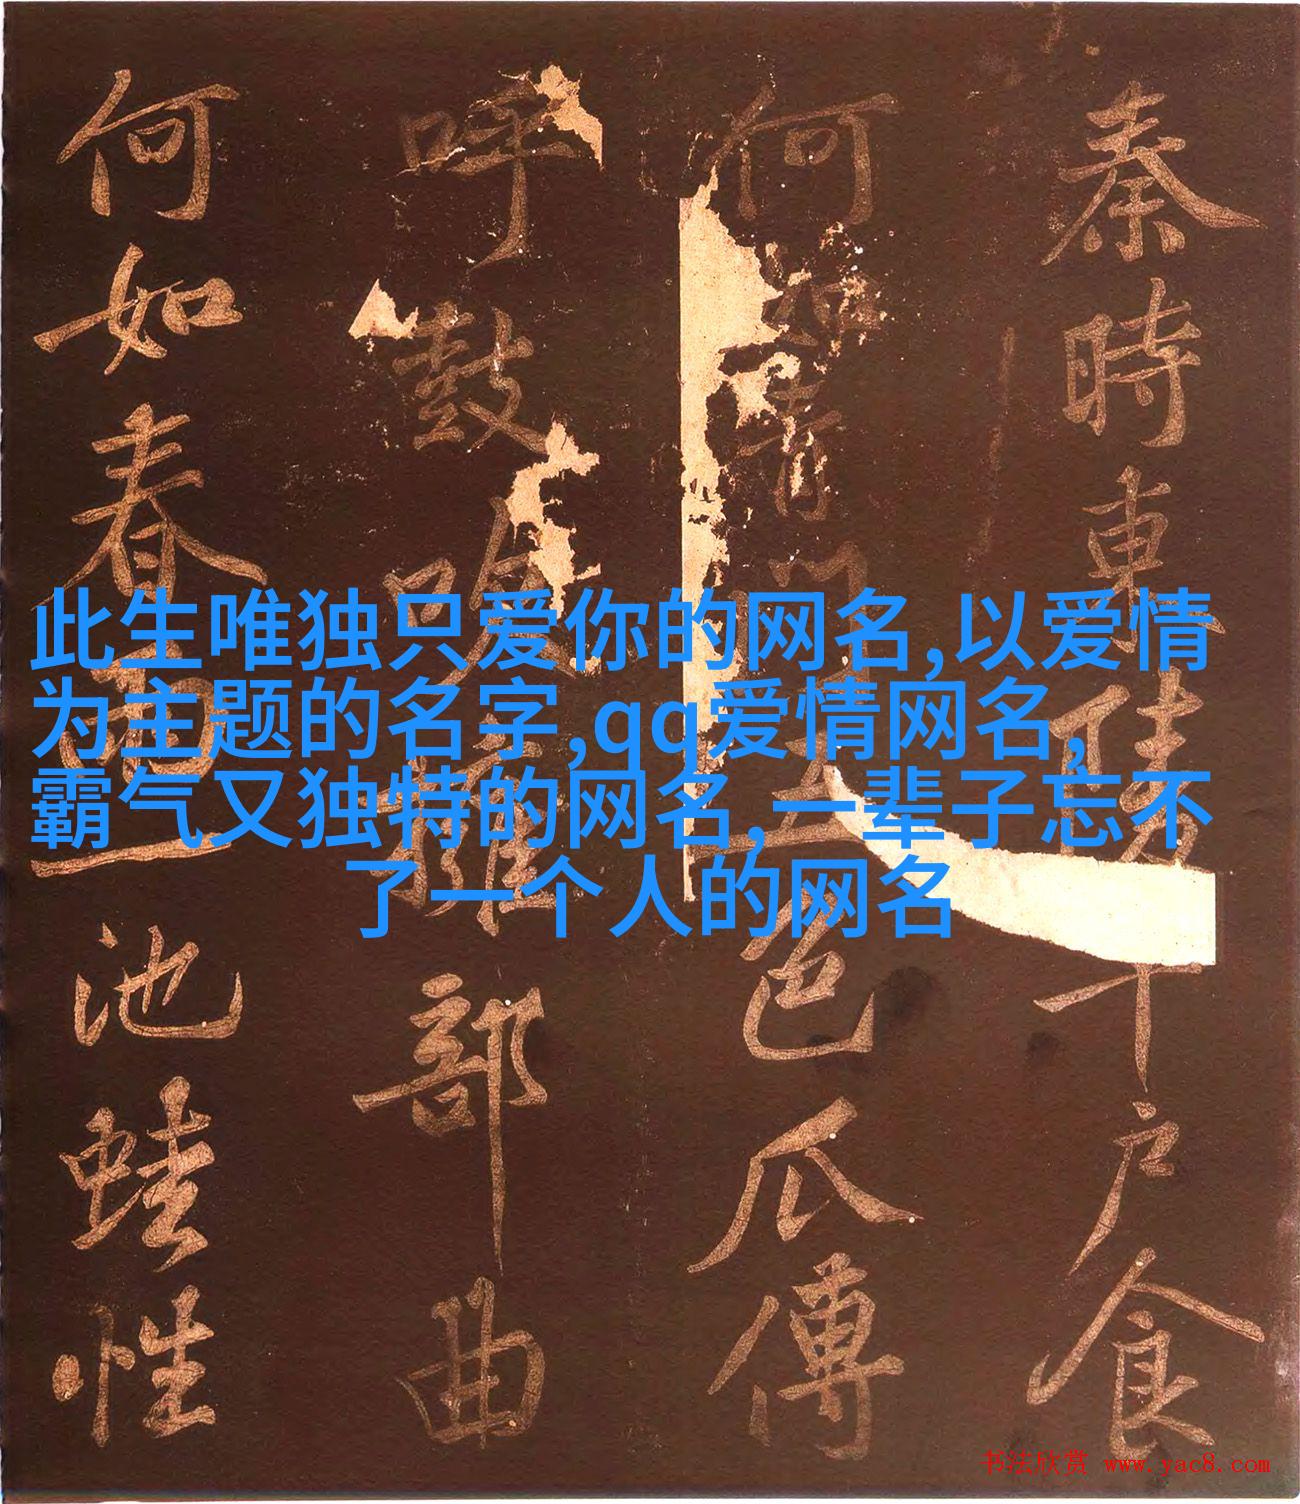 秦時東陵千戶食
何如青門五色瓜傳
呼鼓吹擁部曲
何如春雨一池蛙性
此生唯独只爱你的网名,以爱情
为主题的名字,qq爱情网名,
霸气又独特的网名,一辈子忘不
了一个人的网名
书法欣赏 www.yac8.com